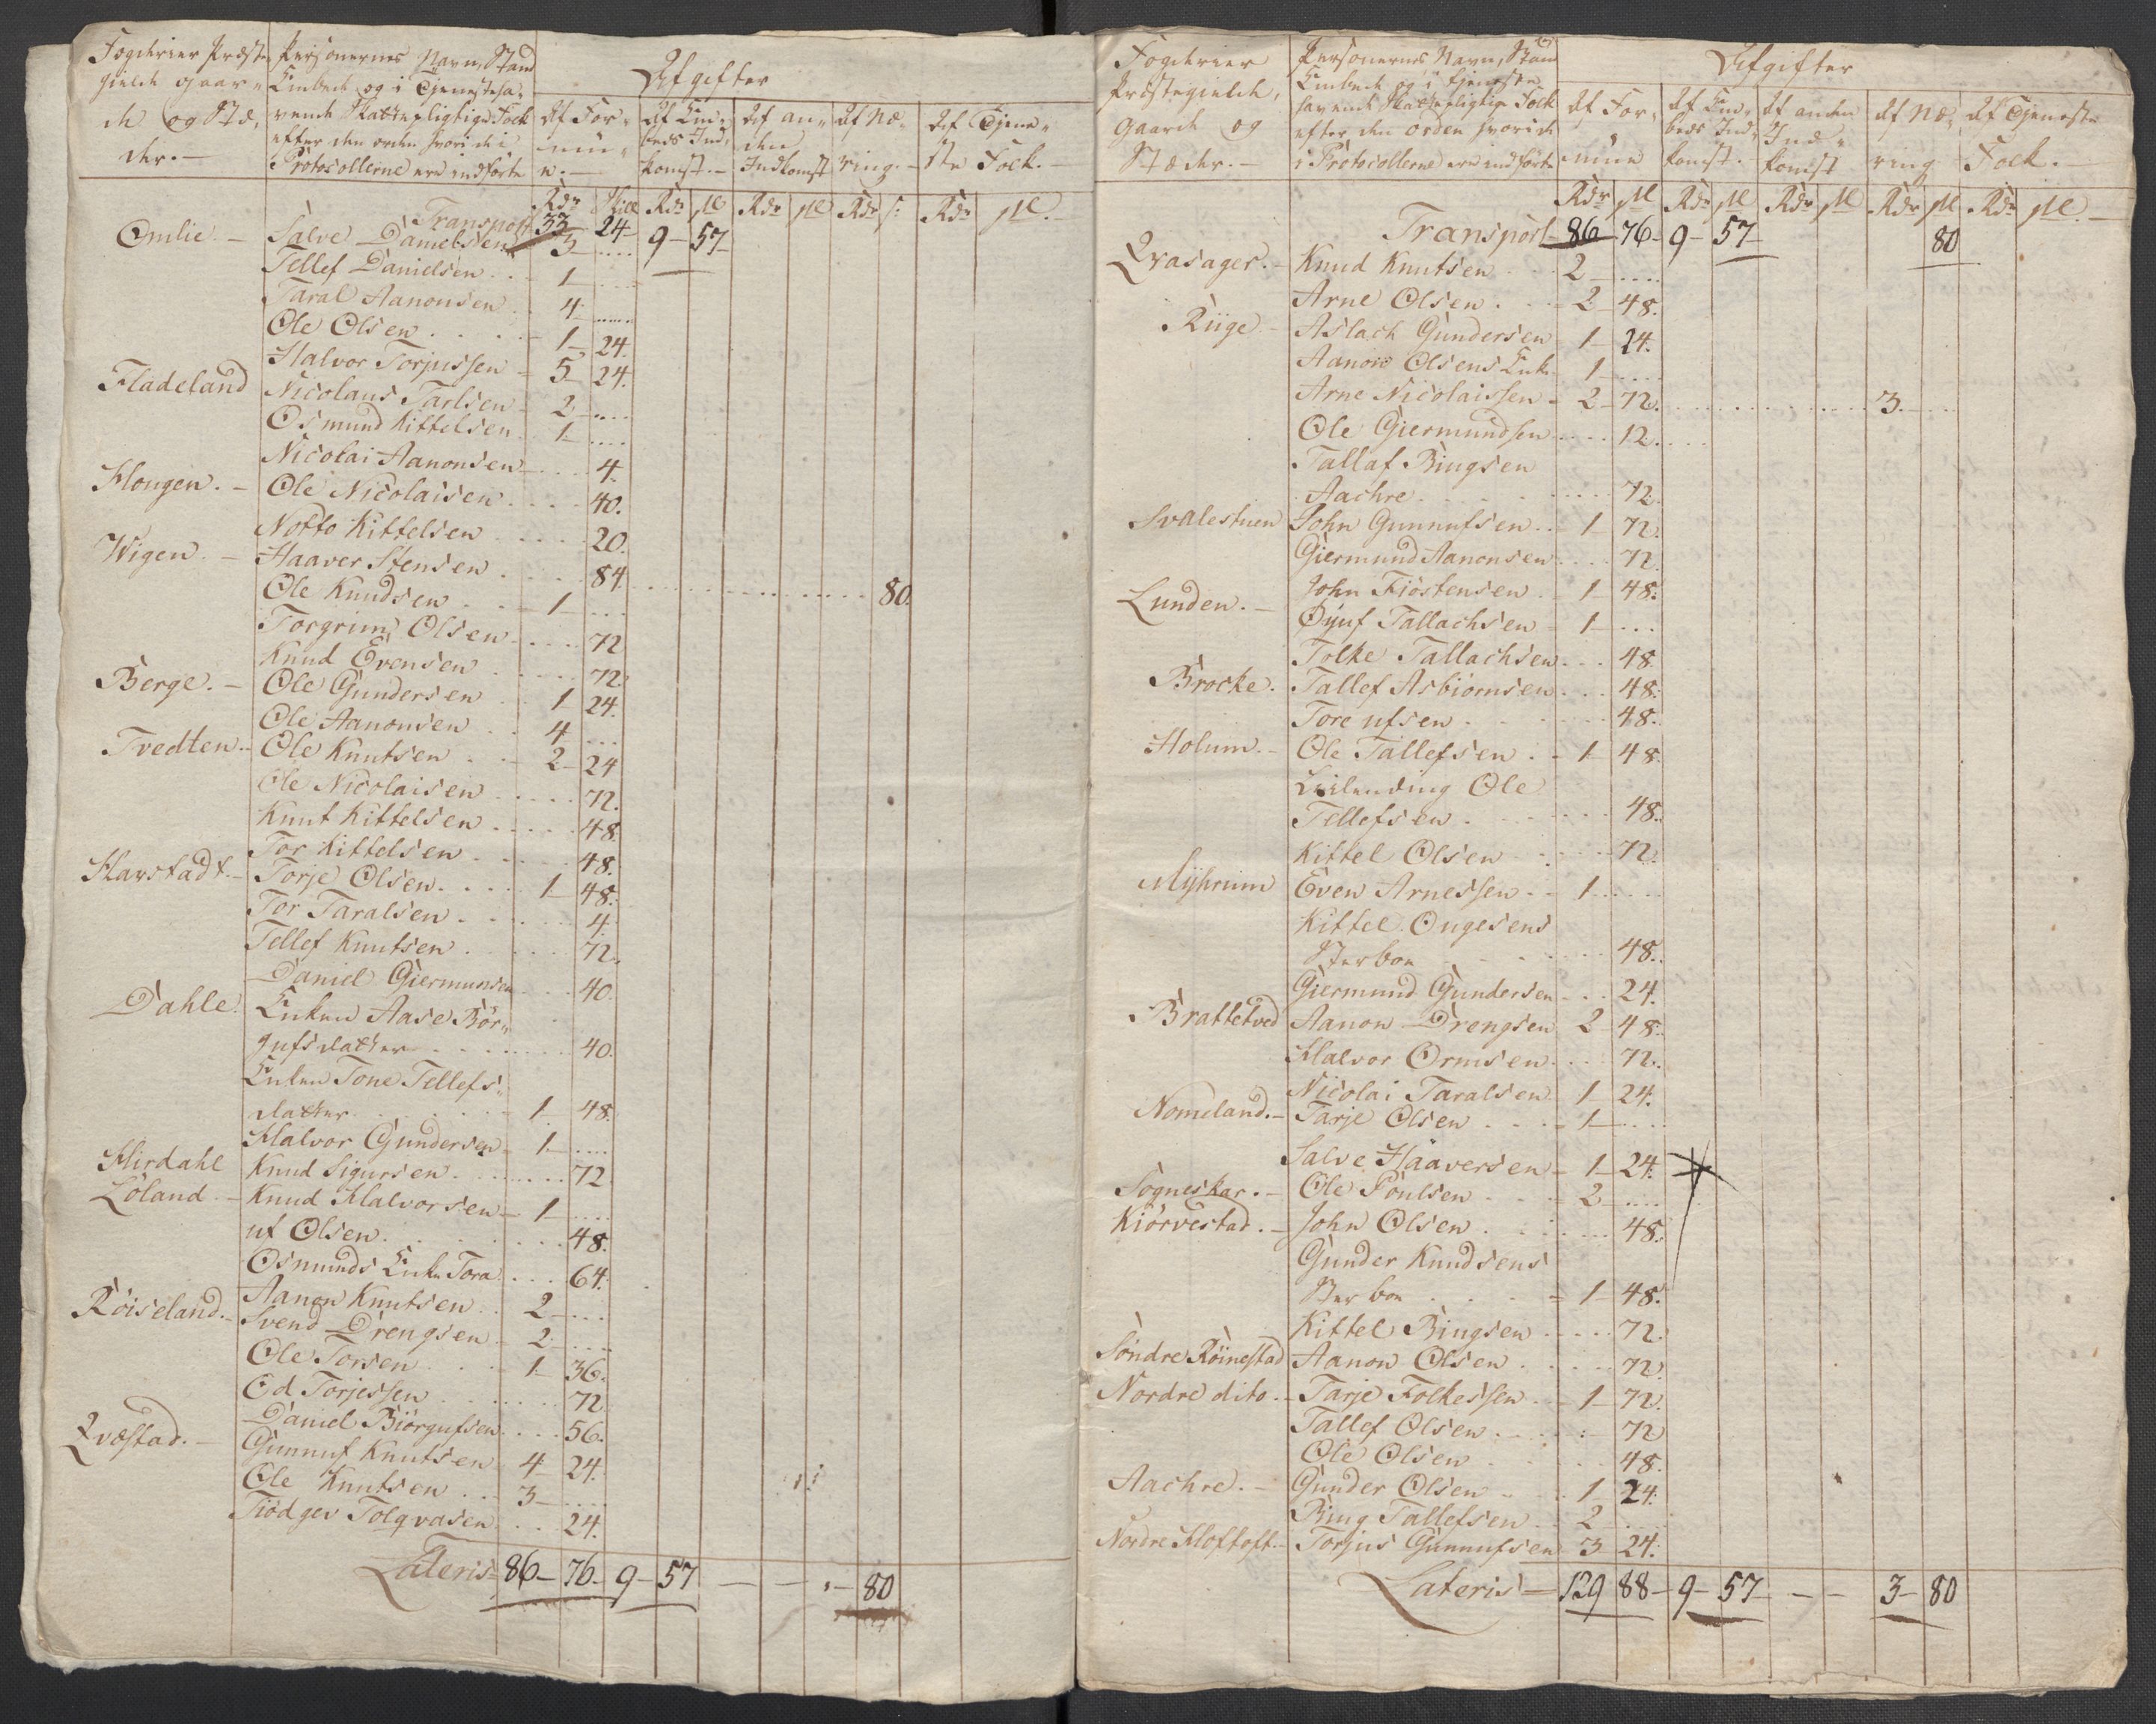 Fogderier Præste
gielde Gaar-
de og Stæ,
der.
Personernes Navn, Stand
Embede og i Tjenesteha,
vende Skattepligtige Folck
efter den orden hvori de i
Protocollerne ere indførte
Afgifter
Af For-
mu-
e.
Af Em-
beds Ind,
komst.
Af an-
den
Indkomst
Af Næ-
ring.
Af Tjene-
ste Folck.
Rdr Skill Rdr ſl Rdr ſl Rdr s: Rdr ſl.
Transport 33 24 9 57
Omlie. Salve Danielsen 3
Tellef Danielsen 1
Taral Aanonsen 4
Ole Olsen 1 24.
Halvor Torjussen 5 24.
Fladeland Nicolaus Tarlsen 2
Osmund Kittelsen 1
Nicolai Aanonsen 4.
Hougen. Ole Nicolaisen 40.
Notto Kittelsen 20.
Wigen. Haaver Stensen 84. 80.
Ole Knudsen 1
Torgrim Olsen 72
Knud Evensen 72.
Berge. Ole Gundersen 1 24.
Ole Aanonsen 4
Tvedten. Ole Knutsen 2 24
Ole Nicolaisen 72.
Knut Kittelsen 48.
Tor Kittelsen 48.
Harstadt. Torje Olsen 1 48.
Tor Taralsen 4.
Tellef Knutsen 72.
Daniel Giermunsen 40.
Dahle. Enken Aase Bør-
jufsdatter 40.
Enken Tone Tellefs-
datter 1 48.
Halvor Gundersen 1
Hirdahl Knud Sigursen 72.
Löland. Knud Halvorsen 1
uf Olsen 48.
Osmunds Enke Tora 64.
Aanon Knutsen 2
Röiseland. Svend Drengsen 2
Ole Torsen 1 36.
Ed Torjessen 72
Daniel Biörgufsen 56.
Qvæstad. Gunnuf Knutsen 4 24.
Ole Knutsen 3
Tiödgev Tolqvasen 24.
Lateris 86 76 9 57 80
Fogderier
Præstegielde,
Gaarde og
Stæder.
Personernes Navn, Stand
Embede og i Tjeneste
havende Skattepligtige Folck
efter den orden hvori de
i Protocollerne ere indförte
Afgifter
Af For-
mue
Af Em-
beds Ind-
komst.
Af anden
Ind-
komst
Af Næ-
ring
Af Tjeneste
Folck.
Rdr ſl Rdr ſl Rdr ſl Rdr ſl Rdr ſl.
Transport 86 76 9 57 80
Qvasager. Knud Knutsen 2
Arne Olsen 2 48.
Riige. Aslach Gundersen 1 24.
Aanon Olsens Enke 1
Arne Nicolaissen 2 72. 3.
Ole Giermundsen 12.
Tallaf Bingsen
Aachre 72.
Svalestuen John Gunnufsen 1 72.
Giermund Aanonsen 72.
Lunden. John Tiöstensen 1 48.
Öyuf Tallachsen 1
Tolke Tallachsen 48
Brocke. Tallef Asbiornsen 48.
Tore ufsen 48.
Holum. Ole Tallefsen 1 48.
Leilending Ole
Tellefsen 48.
Kittel Olsen 72.
Myhrum Even Arnessen 1
Kittel Ongesens
Sterboe 48.
Giermund Gundersen 24.
Brattetved Aanon Drengsen 2 48.
Halvor Ormsen 72.
Nicolai Taralsen 1 24.
Nomeland. Tarje Olsen 1
Salve Haaversen 1 24.
Sogneskar. Ole Poulsen 2
Kiörvestad. John Olsen 48.
Gunder Knudsens
Sterboe 1 48.
Kittel Bingsen 72.
Söndre Röinestad Aanon Olsen 72.
Nordre dito. Tarje Folkessen 1 72.
Tallef Olsen 72
Ole Olsen 48.
Aachre. Gunder Olsen 1 24.
Bing Tallefsen 2
Nordre Hoftoft. Torjus Gunnufsen 3 24.
Lateris 129 88 9 57 3 80